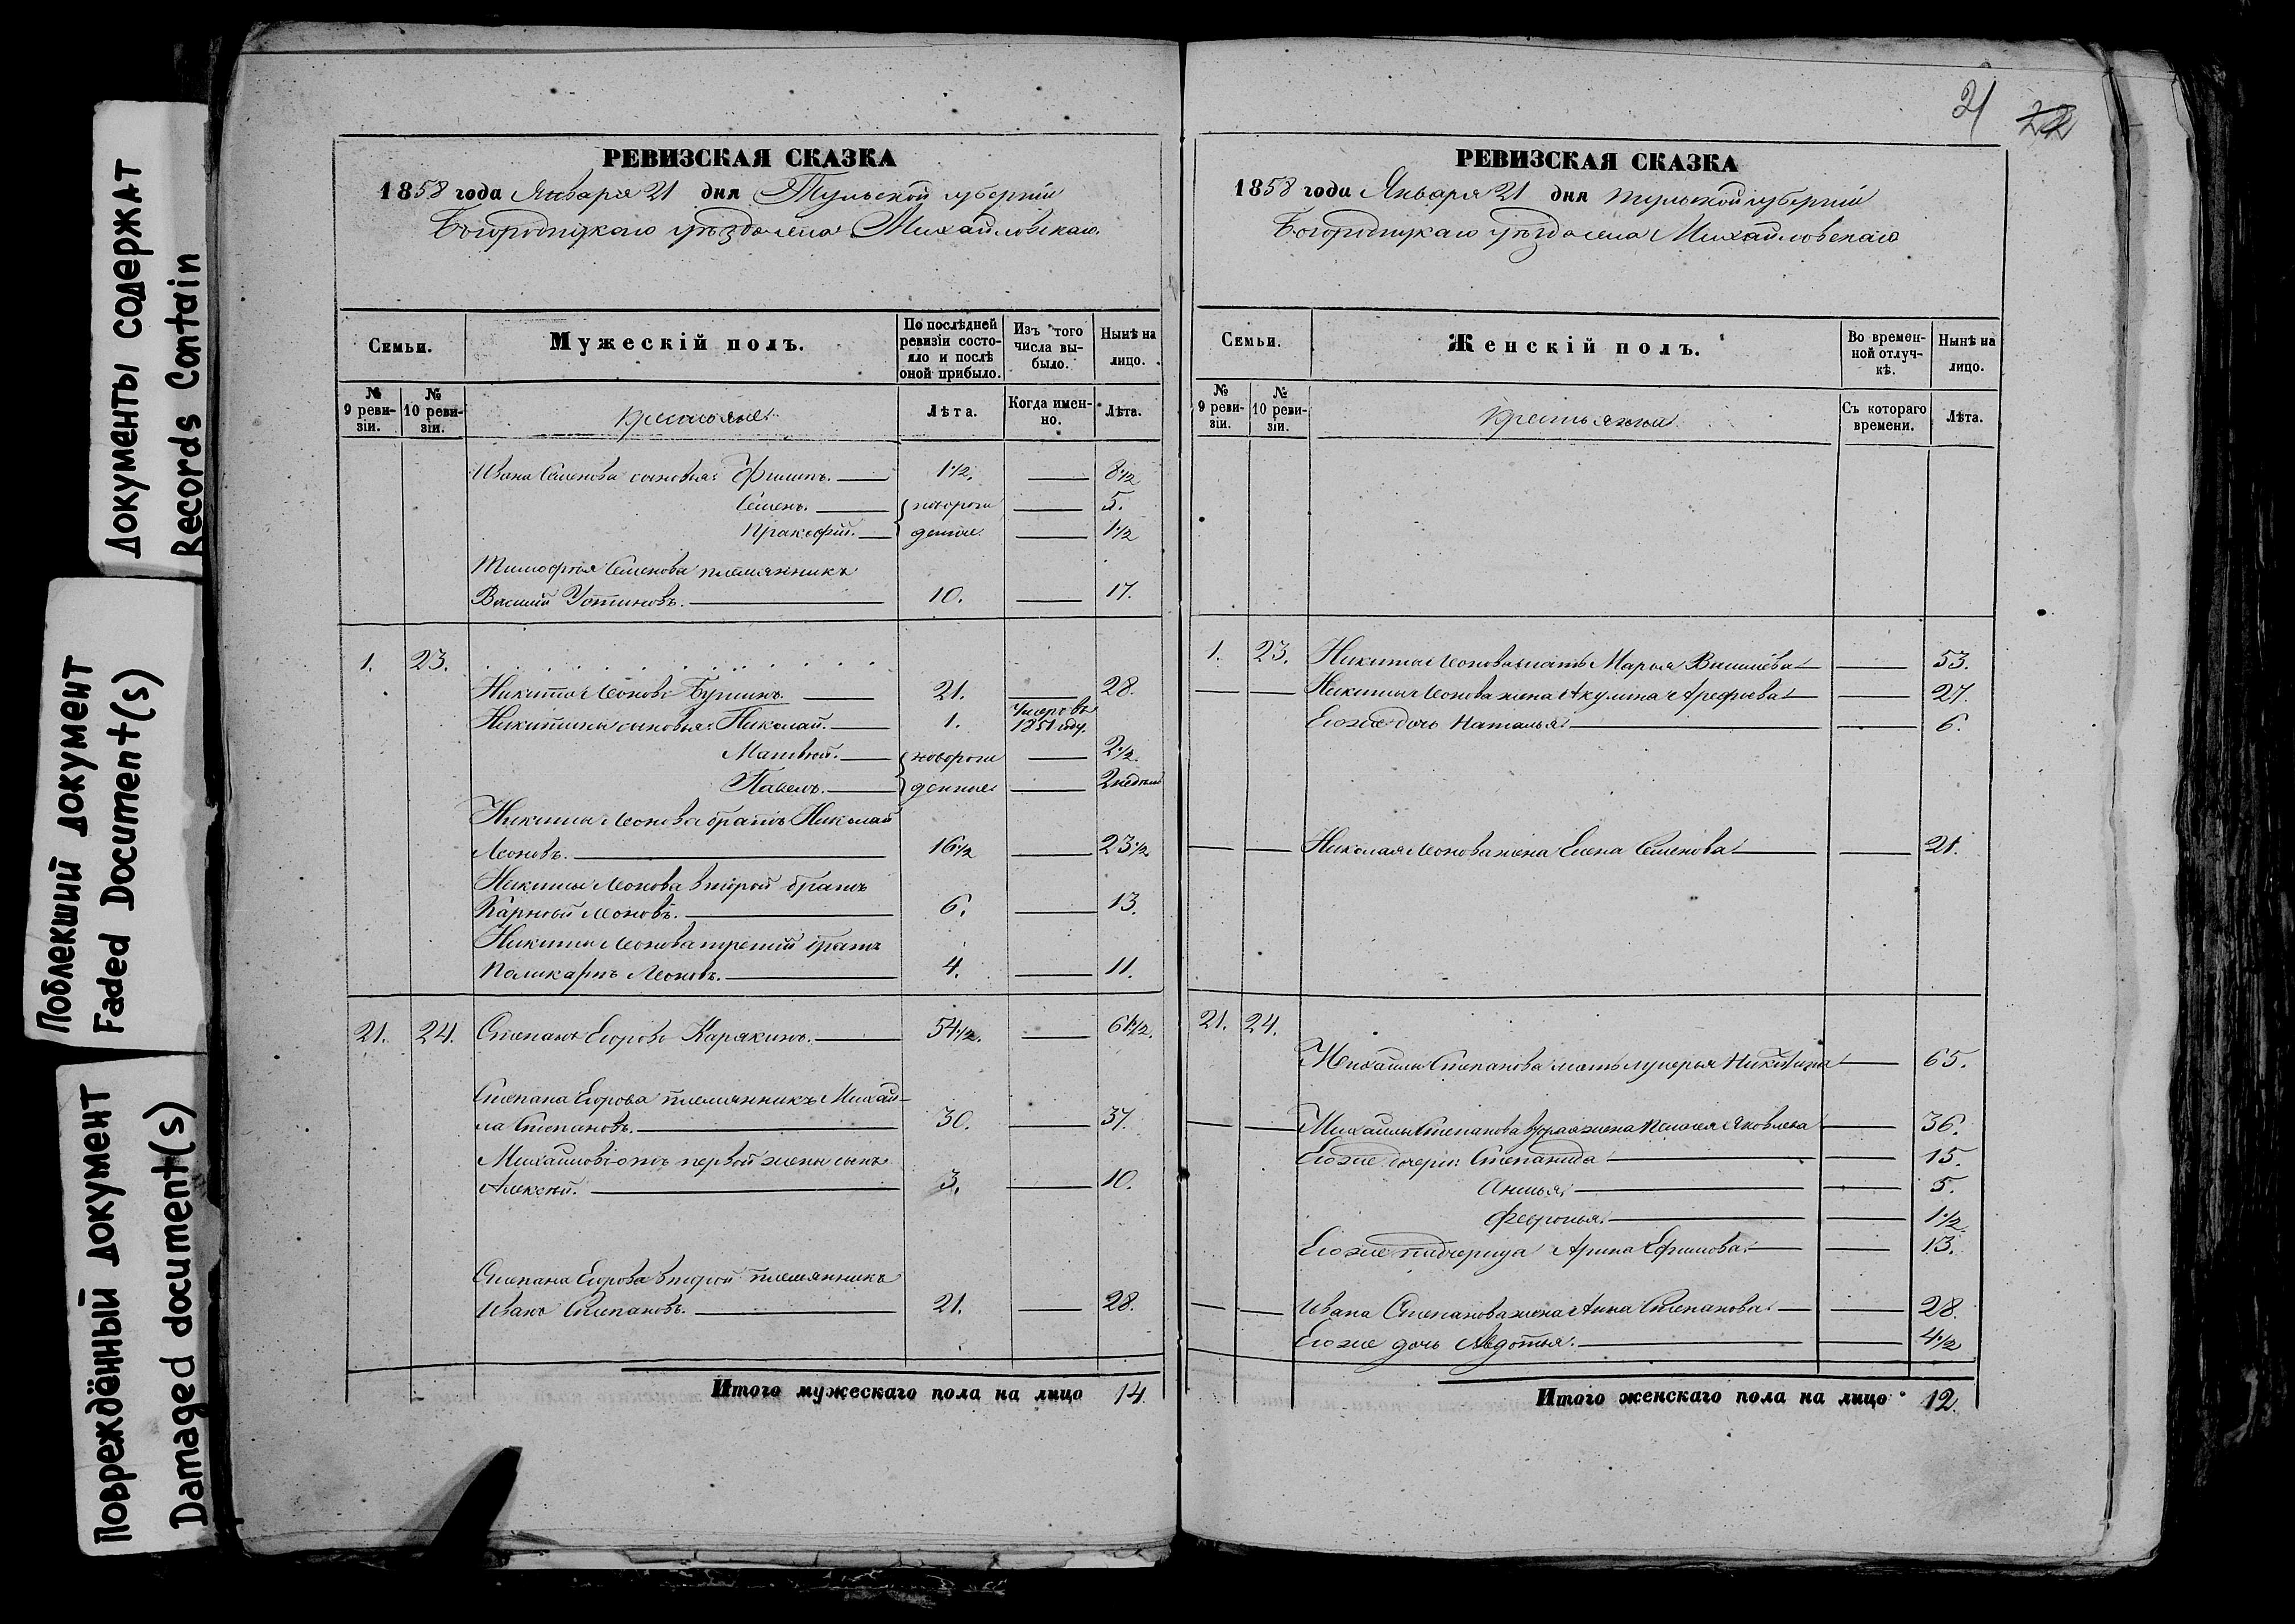 Документы содержат
Records Contain
Поблекший документ
Faded Document(s)
Повреждённый документ
Damaged document(s)
РЕВИЗСКАЯ СКАЗКА
1858 года Января 21 дня Тульской губернии
Богородицкаго уѣзда села Михайловскаго
Семьи.
Мужескій полъ.
По послѣдней ревизіи состояло и послѣ оной прибыло.
Изъ того числа выбыло.
Нынѣ на лицо.
№ 9 ревизіи.
№ 10 ревизіи.
Крестьяне:
Лѣта.
Когда именно.
Лѣта.
Ивана Семенова сыновья: Филипъ. 1 1/2. 8 1/2
Семенъ. новорож 5.
Пракофій. денные 1 1/2
Тимофѣя Семенова племянникъ
Василій Устиновъ. 10. 17.
1. 23.
Никита Леоновъ Бушинъ. 21. 28.
Никитины сыновья: Николай. 1. Умеръ въ 1851 году.
Матвѣй. новорож 2 1/2.
Павелъ. денные 2 недѣли
Никиты Леонова братъ Николай
Леоновъ. 16 1/2 23 1/2
Никиты Леонова второй братъ
Карнѣй Леоновъ. 6. 13.
Никиты Леонова третій братъ
Паликарпъ Леоновъ. 4. 11.
21. 24. Степанъ Егоровъ Карякинъ. 54 1/2. 61 1/2.
Степана Егорова племянникъ Михай-
ла Степановъ. 30. 37.
Михайловъ отъ первой жены сынъ
Алексѣй. 3. 10.
Степана Егорова второй племянникъ
Иванъ Степановъ. 21. 28.
Итого мужескаго пола на лицо 14.
21 22
РЕВИЗСКАЯ СКАЗКА
1858 года Января 21 дня Тульской губернии
Богородицкаго уѣзда села Михайловскаго
Семьи.
Женскій полъ.
Во временной отлучкѣ.
Нынѣ на лицо.
№ 9 ревизіи.
№ 10 ревизіи.
Крестьянки
Съ котораго времени.
Лѣта.
1. 23. Никиты Леонова мать Марья Васильева 53.
Никиты Леонова жена Акулина Арефьева 27.
Его же дочь Наталья 6.
Николая Леонова жена Елена Семенова 21.
21. 24.
Михайлы Степанова мать Лукерья Никитина 65.
Михайлы Степанова вторая жена Пелагея Яковлева 36.
Его же дочери: Степанида 15.
Анисья 5.
Февронья. 1 1/2
Его же падчерица Арина Ефимова 13.
Ивана Степанова жена Анна Степанова 28.
Его же дочь Авдотья. 4 1/2
Итого женскаго пола на лицо 12.